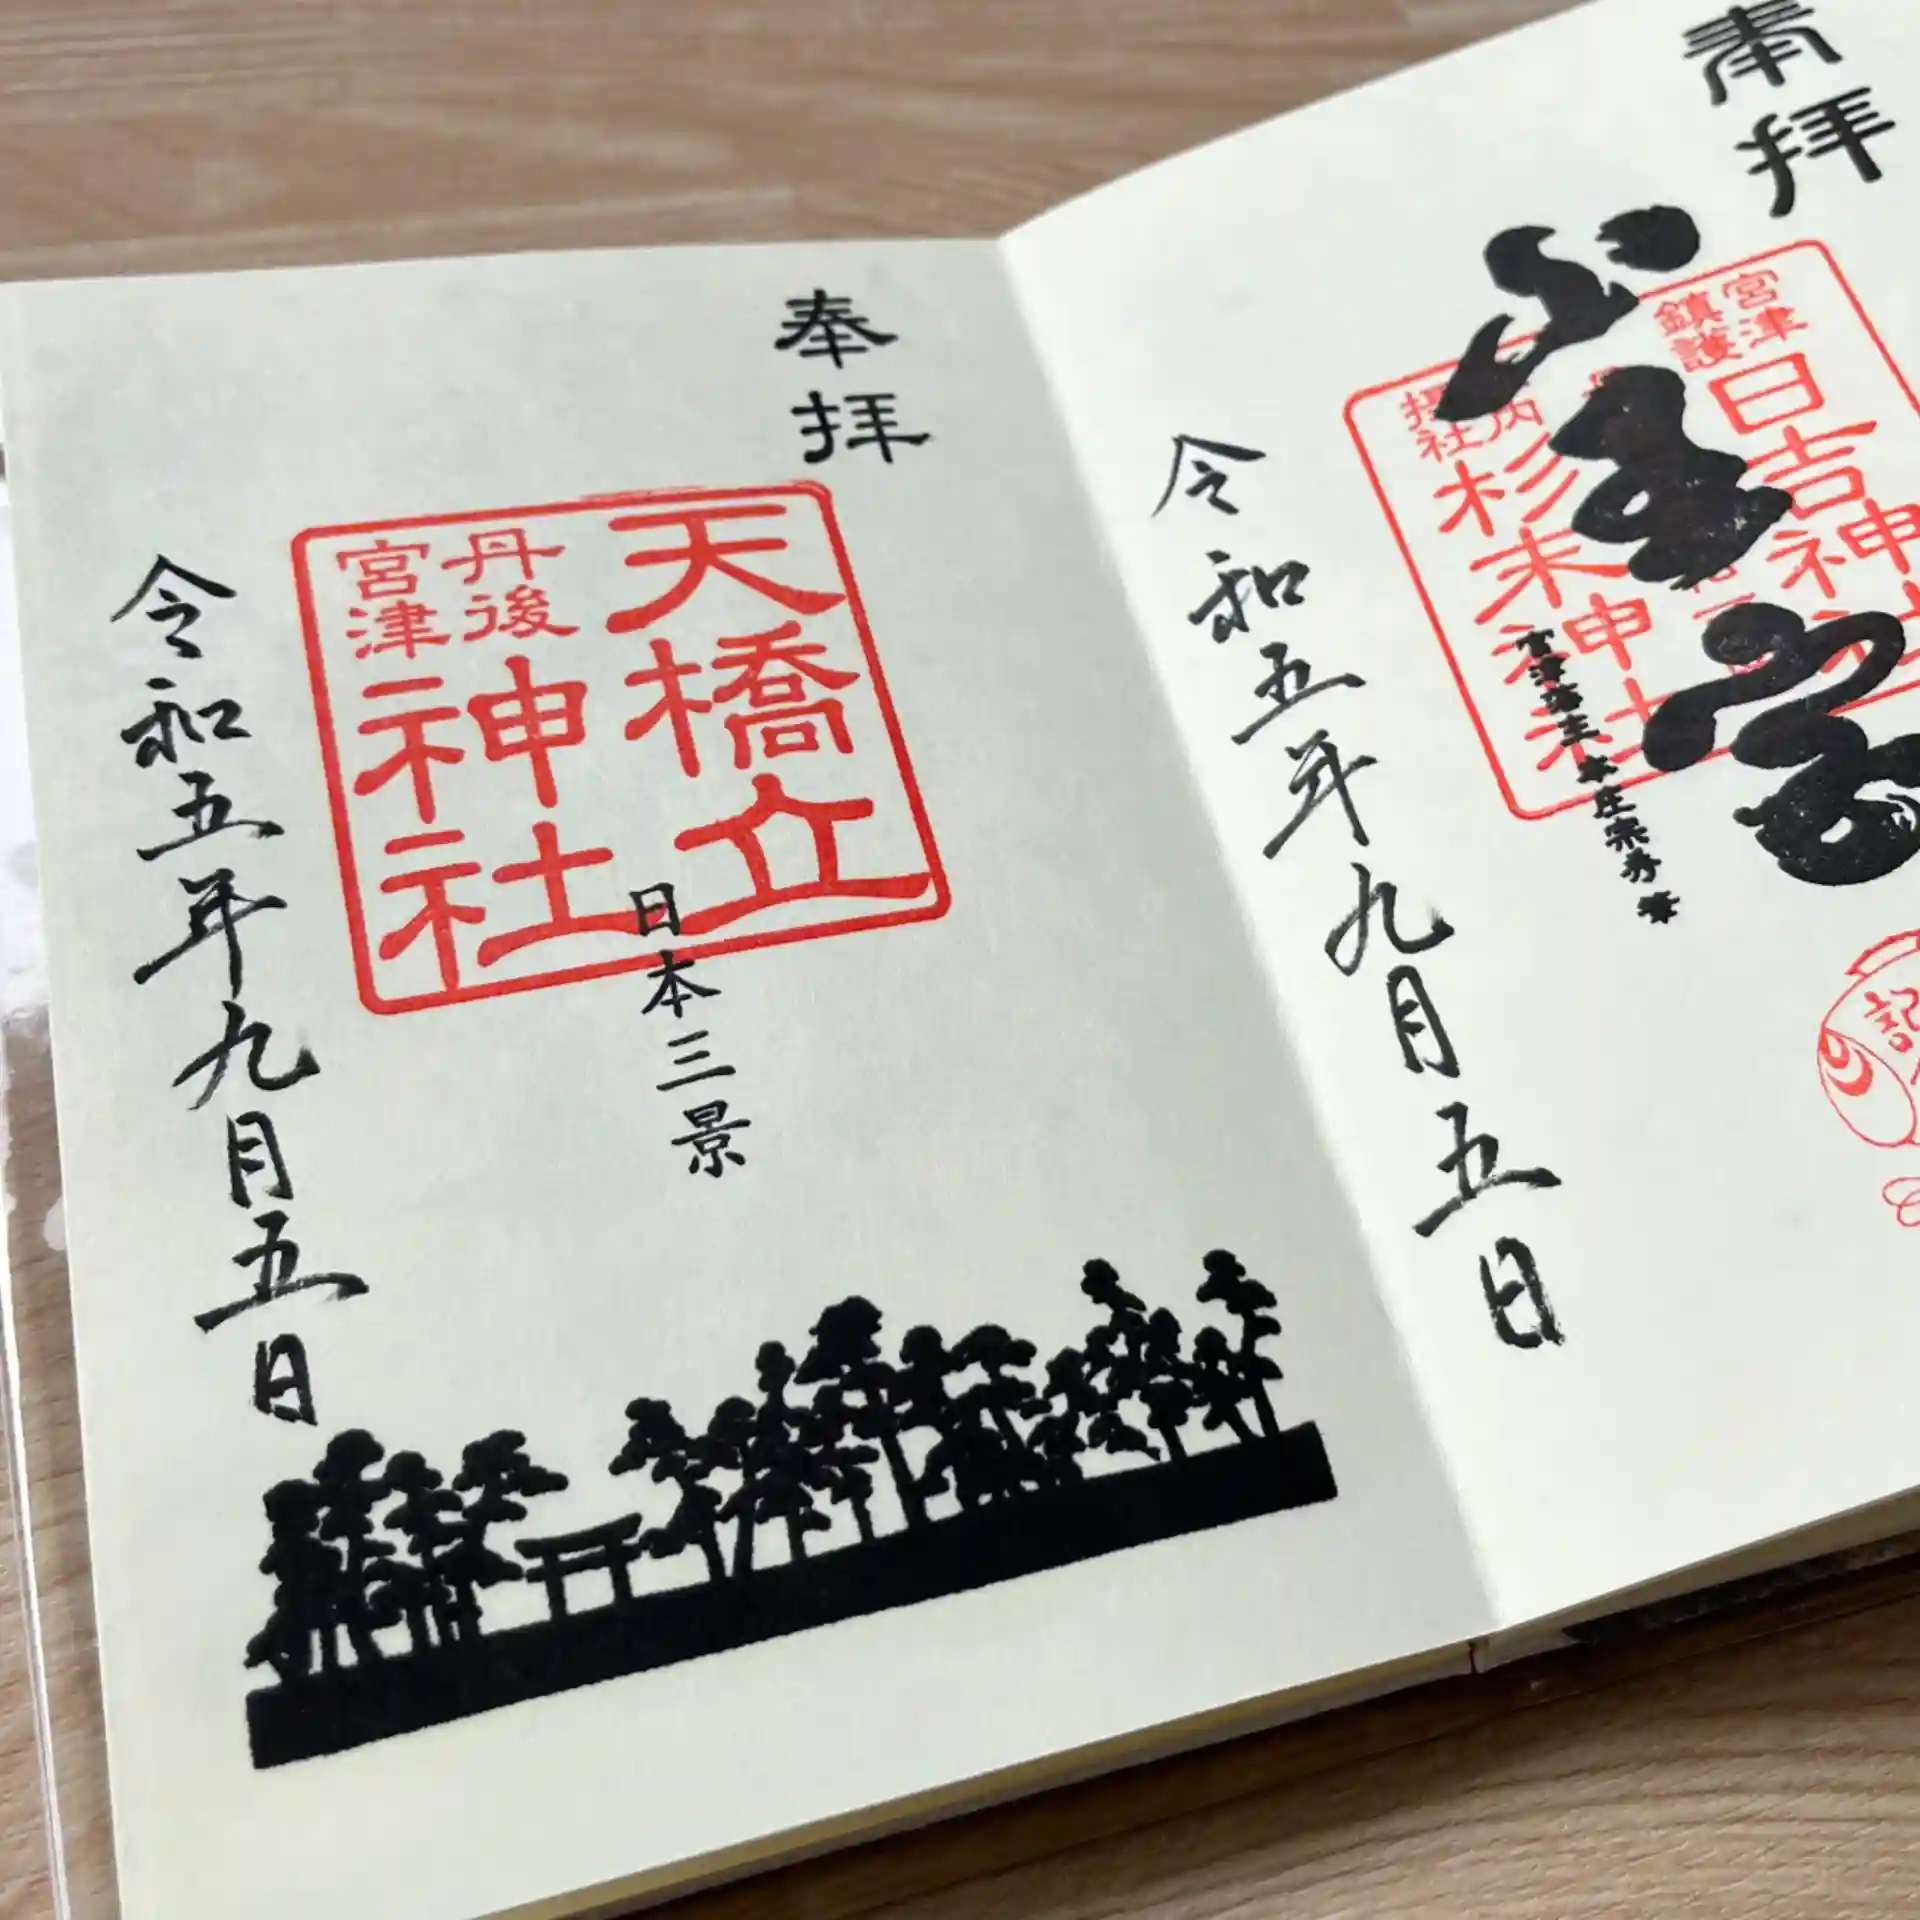 奉拝
宮津
鎮護
日吉神社
摂社
杉末神社
宮津藩主 本庄宗秀筆
令和五年九月五日
奉拝
天橋立
丹後
宮津
神社
日本三景
令和五年九月五日